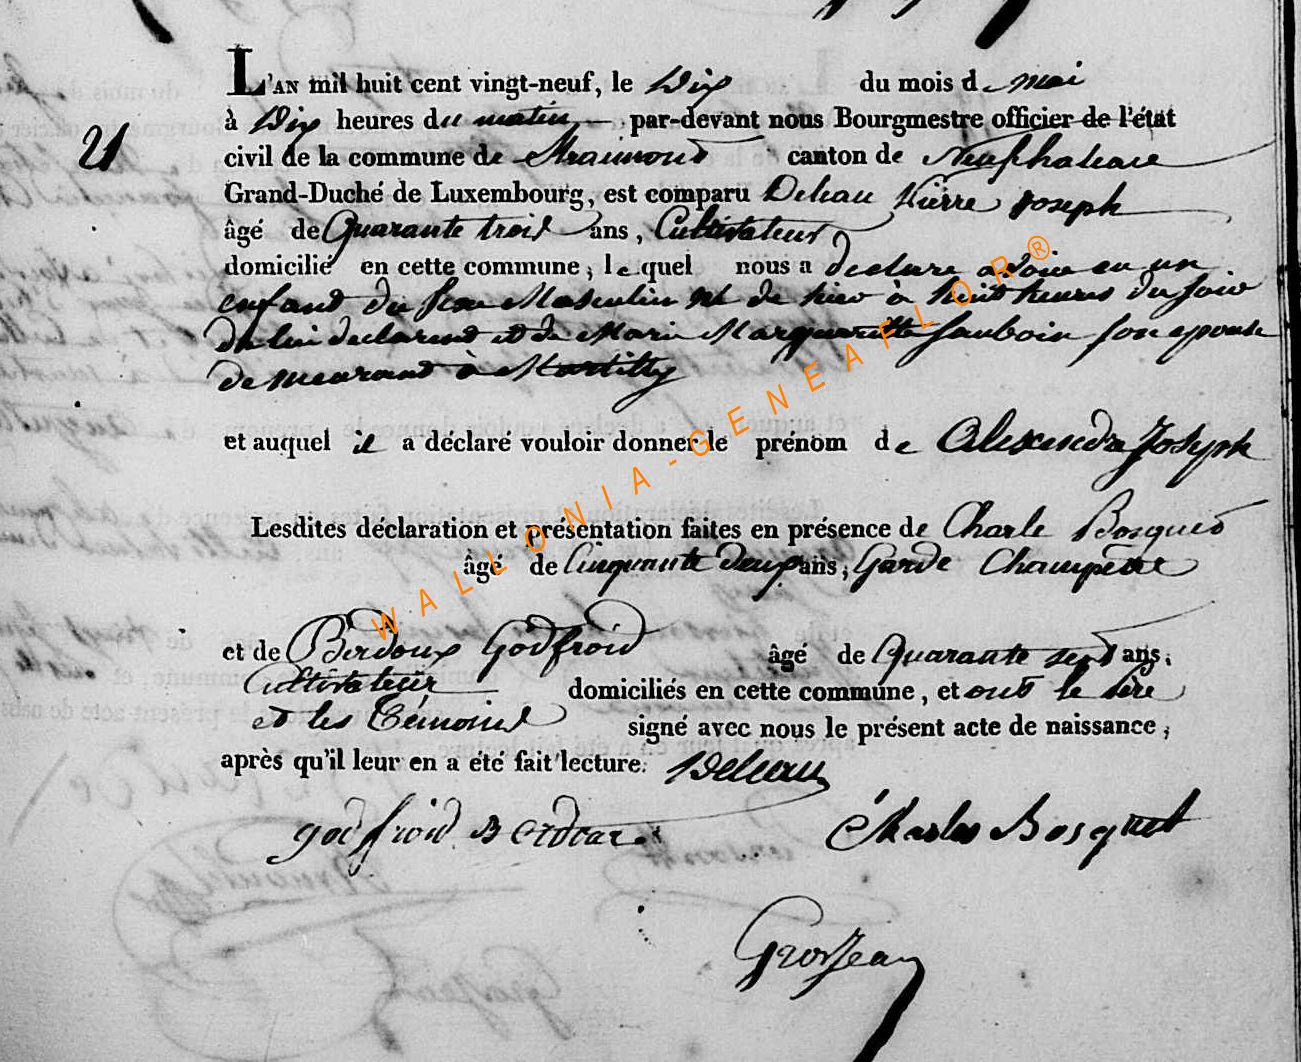 L'AN mil huit cent vingt-neuf, le Dix du mois de mai
21
à Dix heures du matin par-devant nous Bourgmestre officier de l'état
civil de la commune de Straimont canton de Neufchateau
Grand-Duché de Luxembourg, est comparu Deleau Pierre Joseph
âgé de Quarante trois ans, Cultivateur
domicilié en cette commune, lequel nous a declare avoir eu un
enfant du sexe Masculin né de hier à huit heures du soir
de lui declarent et de Marie Margueritte Jauboin son epouse
demeurand à Martilly
et auquel il a déclaré vouloir donner le prénom de Alexendre Joseph
Lesdites déclaration et présentation faites en présence de Charle Bosquet
âgé de Cinquante deux ans, Garde Champetre
et de Berdoux Godfroid âgé de Quarante sept ans,
Cultivateur domiciliés en cette commune, et ont le père
et les témoins signé avec nous le présent acte de naissance,
après qu'il leur en a été fait lecture. Deleau
godfroid Berdoux Charles Bosquet
Grosjean
WALLONIA-GENEAFLOR®